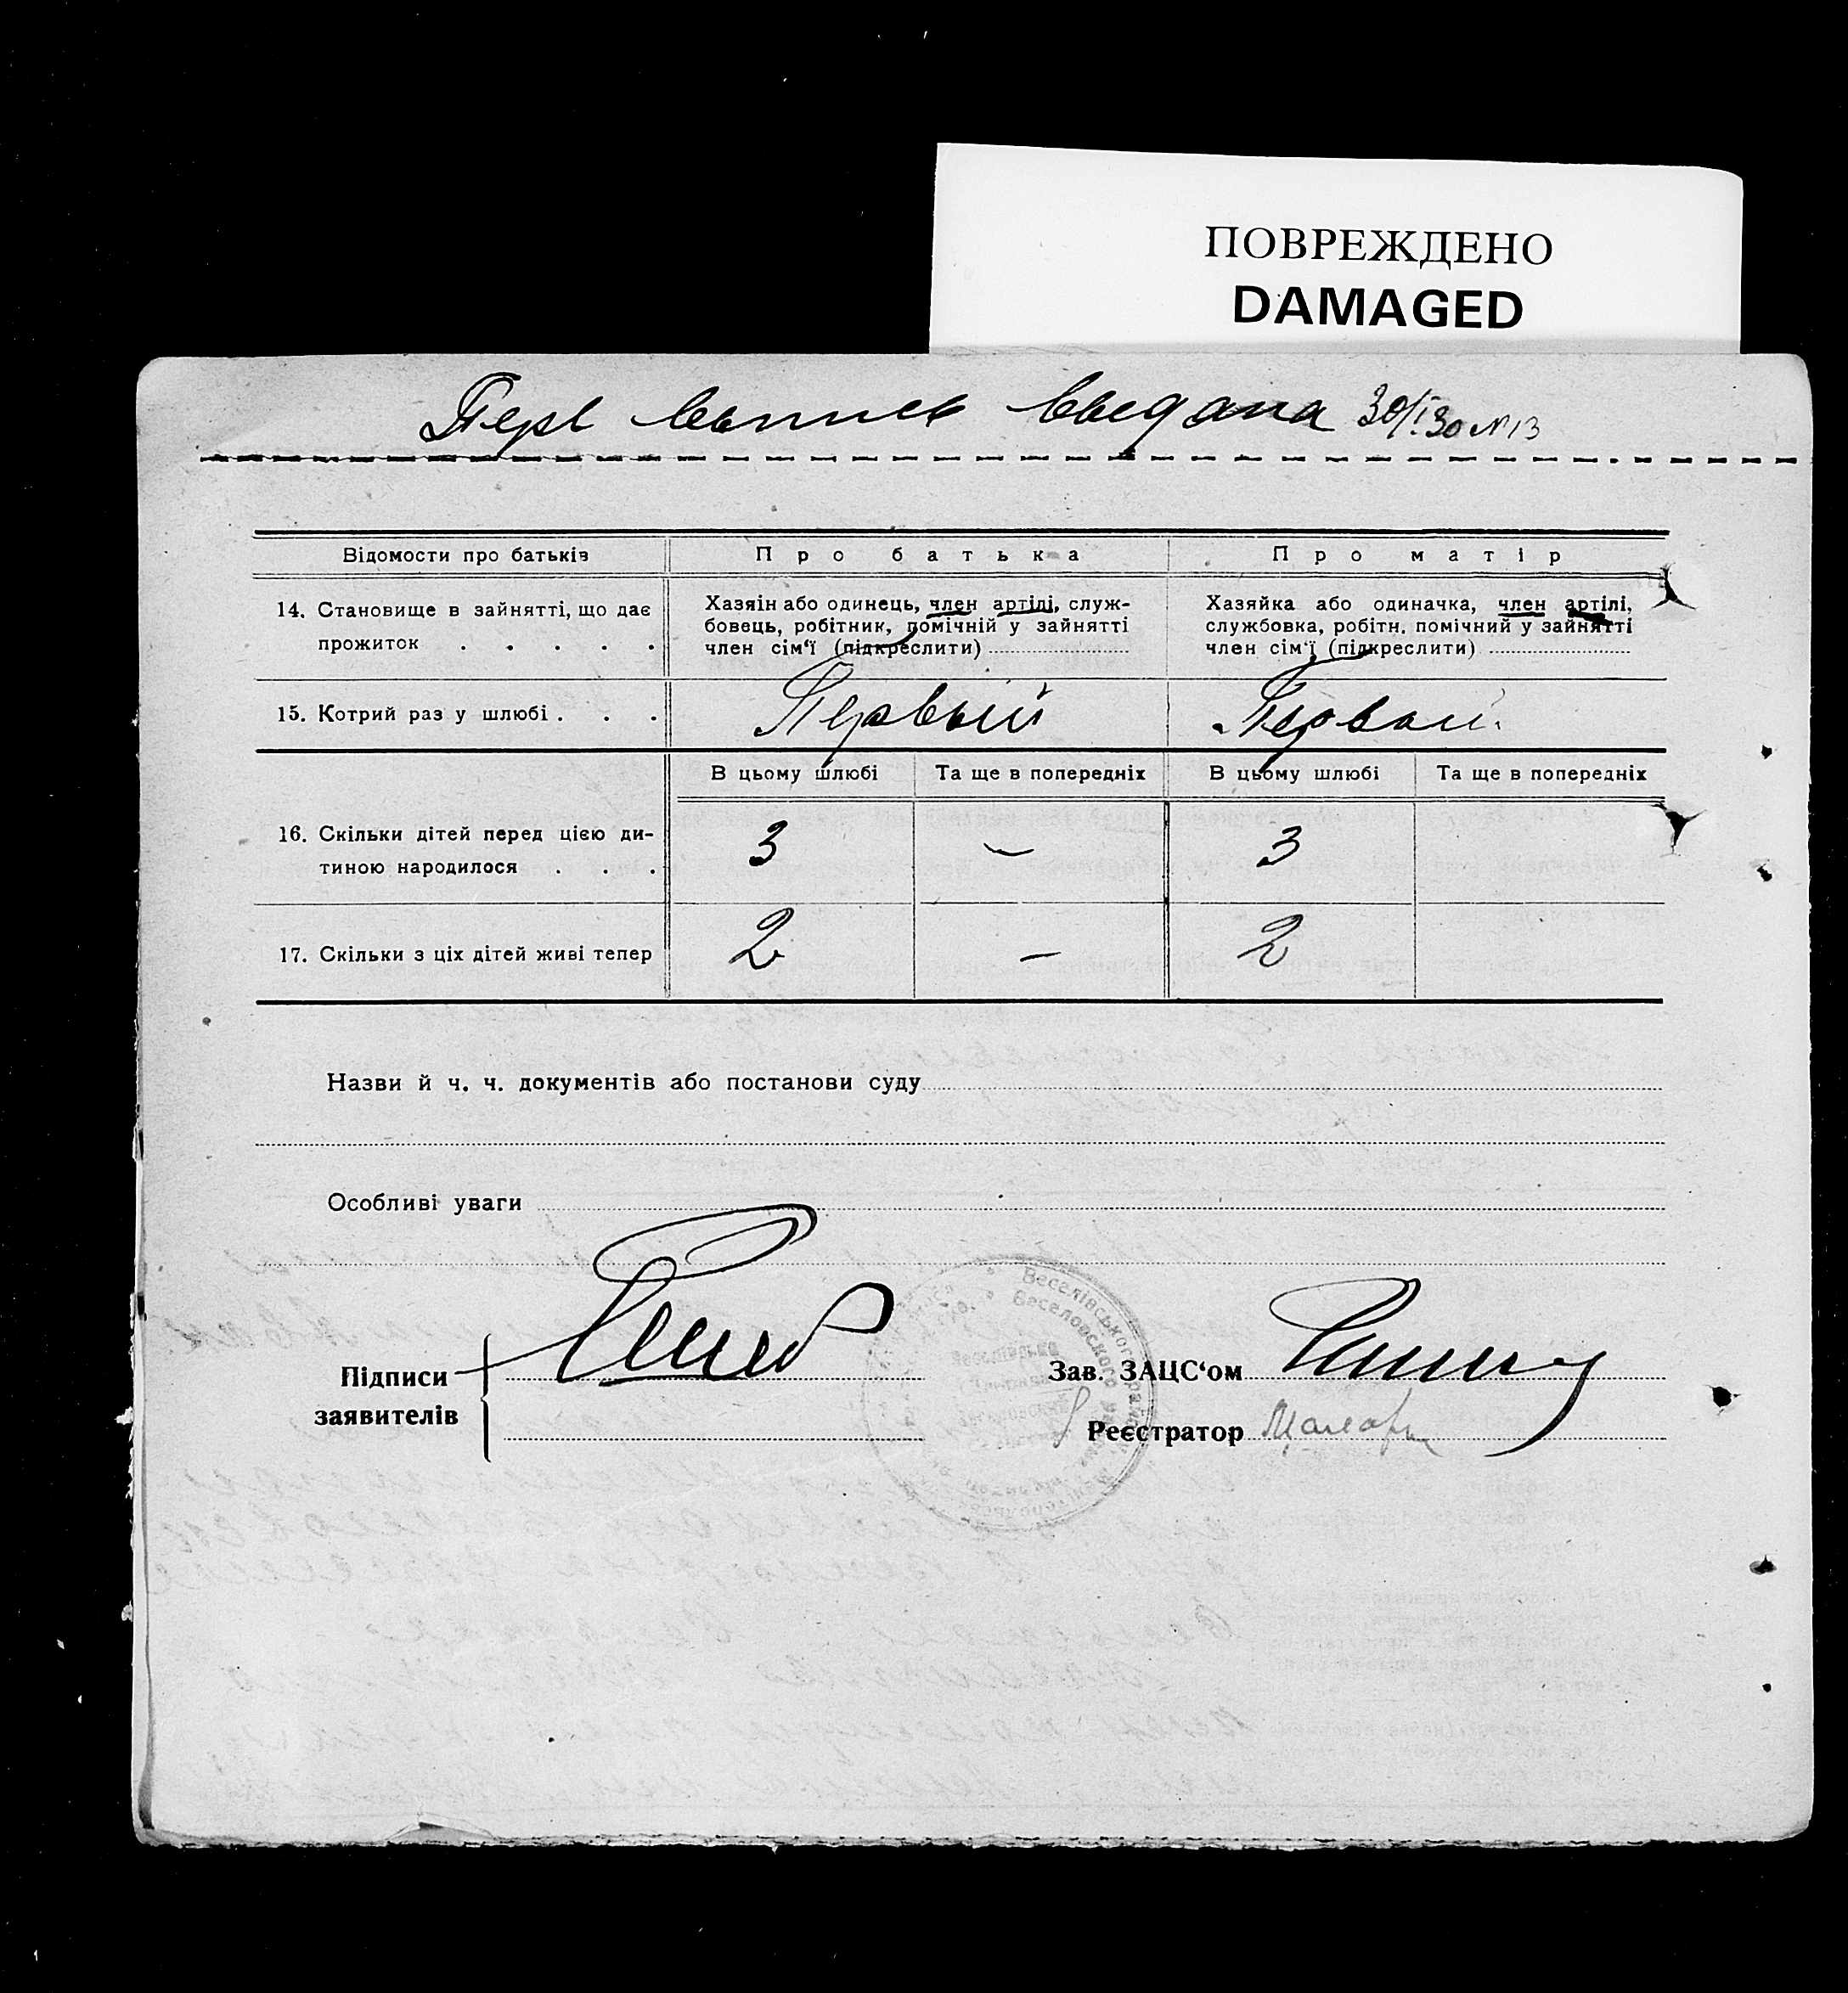 ПОВРЕЖДЕНО
DAMAGED
Перв выпись выдана 30/I 30 №13
Відомости про батьків
Про батька
Про матір
14. Становище в зайнятті, що дає
прожиток . . . . .
Хазяін або одинець, член артілі, служ-
бовець, робітник, помічній у зайнятті
член сім'ї (підкреслити)
Хазяйка або одиначка, член артілі,
службовка, робітн. помічний у зайнятті
член сім'ї (підкреслити)
15. Котрий раз у шлюбі . . .
Первый
Первый
В цьому шлюбі
Та ще в попередніх
В цьому шлюбі
Та ще в попередніх
16. Скільки дітей перед цією ди-
тиною народилося . . .
3
—
3
17. Скільки з ціх дітей живі тепер
2
—
2
Назви й ч. ч. документів або постанови суду
Особливі уваги
Підписи
заявителів
Веселівського
Веселовского
Зав. ЗАЦС'ом
Реєстратор